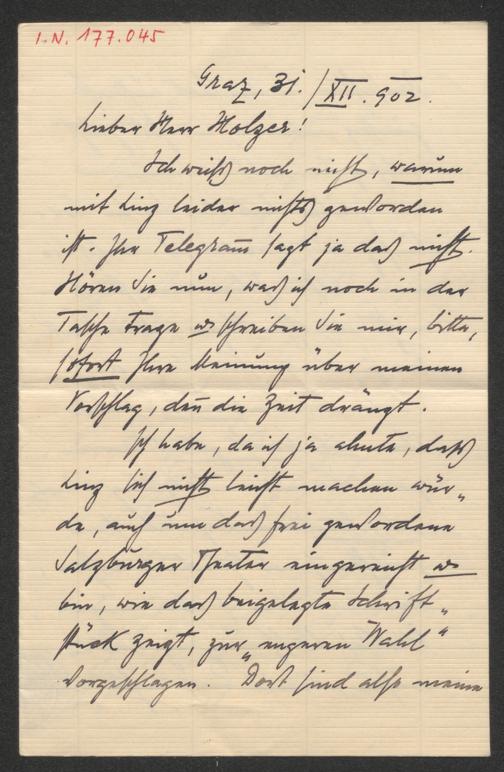 I.N. 177.045
Graz, 31./XII. 902.
Lieber Herr Holzer!
Ich weiß noch nicht, warum
mit Linz leider nichts geworden
ist. Ihr Telegram̅ sagt ja das nicht.
Hören Sie nun, was ich noch in der
Tasche trage u schreiben Sie mir, bitte,
sofort Ihre Meinung über meinen
Vorschlag, den̅ die Zeit drängt.
Ich habe, da ich ja ahnte, daß
Linz sich nicht leicht machen wür„
de, auch um das frei gewordene
Salzburger Theater eingereicht u
bin, wie das beigelegte Schrift„
stück zeigt, zur „engeren Wahl“
vorgeschlagen. Dort sind also meine